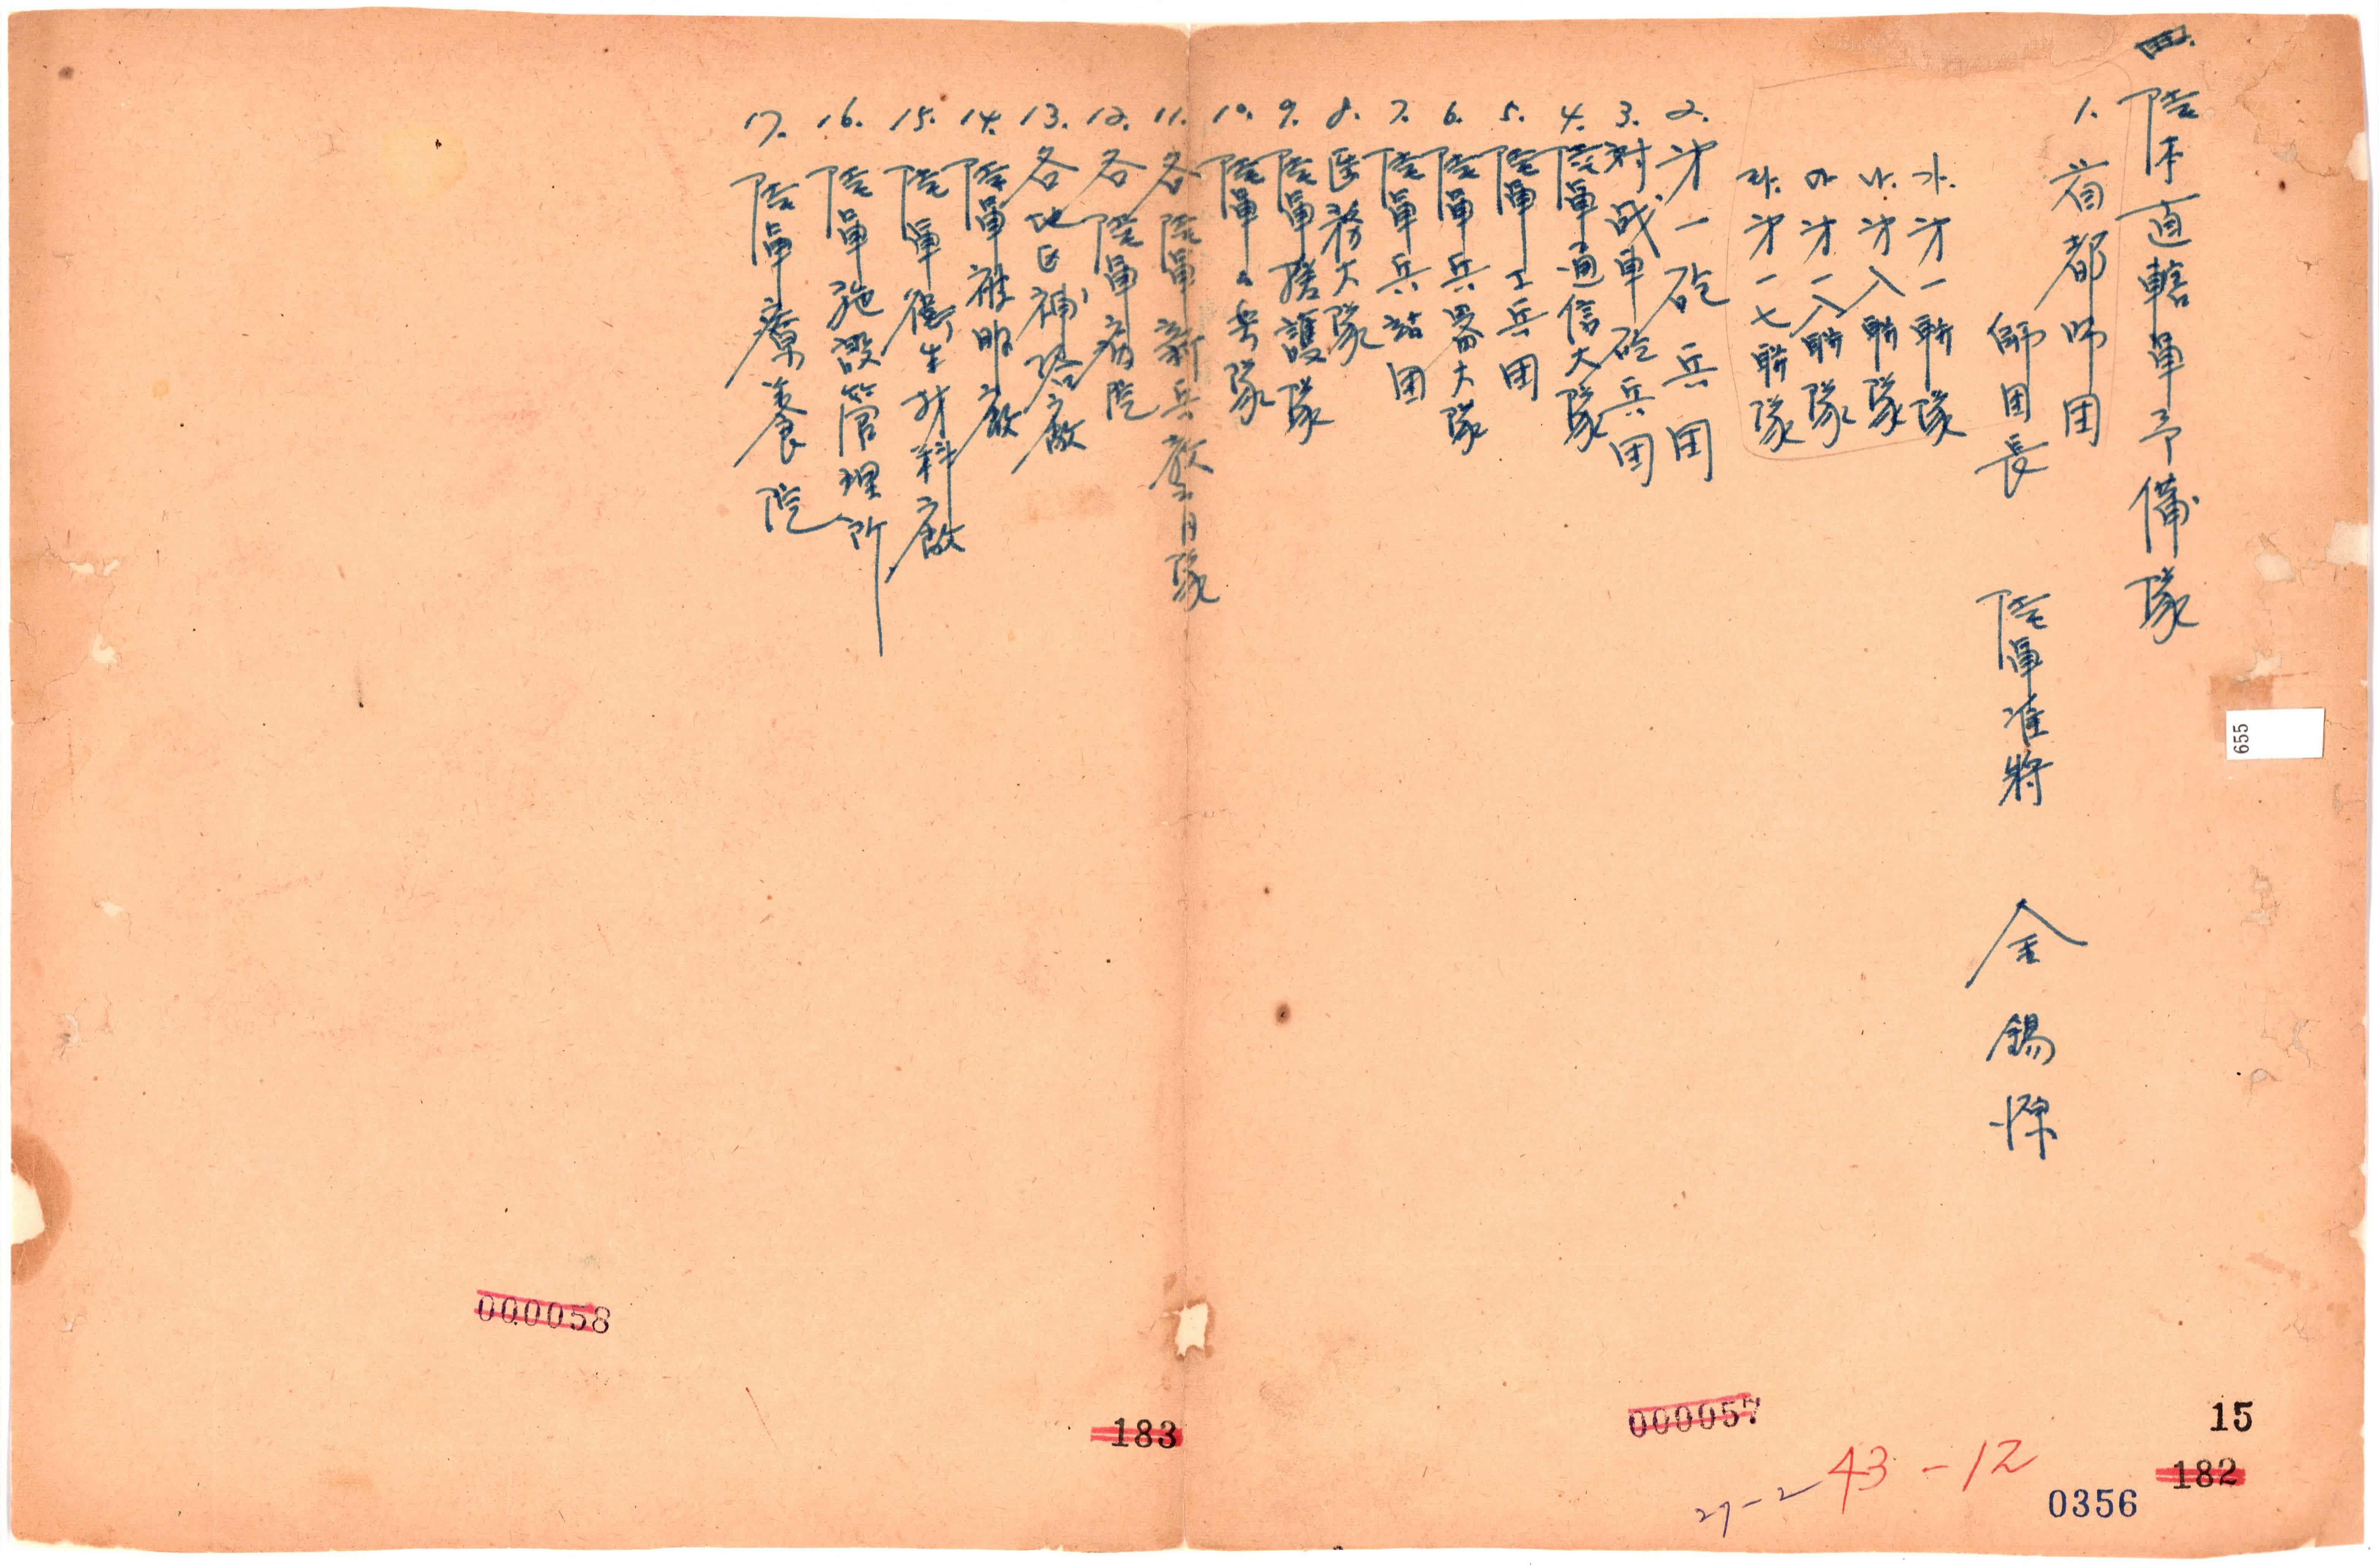 四. 陸本直轄軍予備隊
1. 首都师团
師団長 陸軍准將 金錫
가. 才一聯隊
나. 才八聯隊
다. 才一八聯隊
라. 才一七聯隊
2. 才一砲兵团
3. 対战車砲兵団
4. 陸軍通信大隊
5. 陸軍工兵団
6. 陸軍兵器大隊
7. 陸軍兵站团
8. 医務大隊
9. 陸軍援護隊
10. 陸軍 隊
11. 各陸軍新兵教育隊
12. 各陸軍病院
13. 各地区補給廠
14. 陸軍 廠
15. 陸軍衛生材料廠
16. 陸軍施設管理所
17. 陸軍療養院
655
000058
183
000057
15
182
43-12
27-2
0356